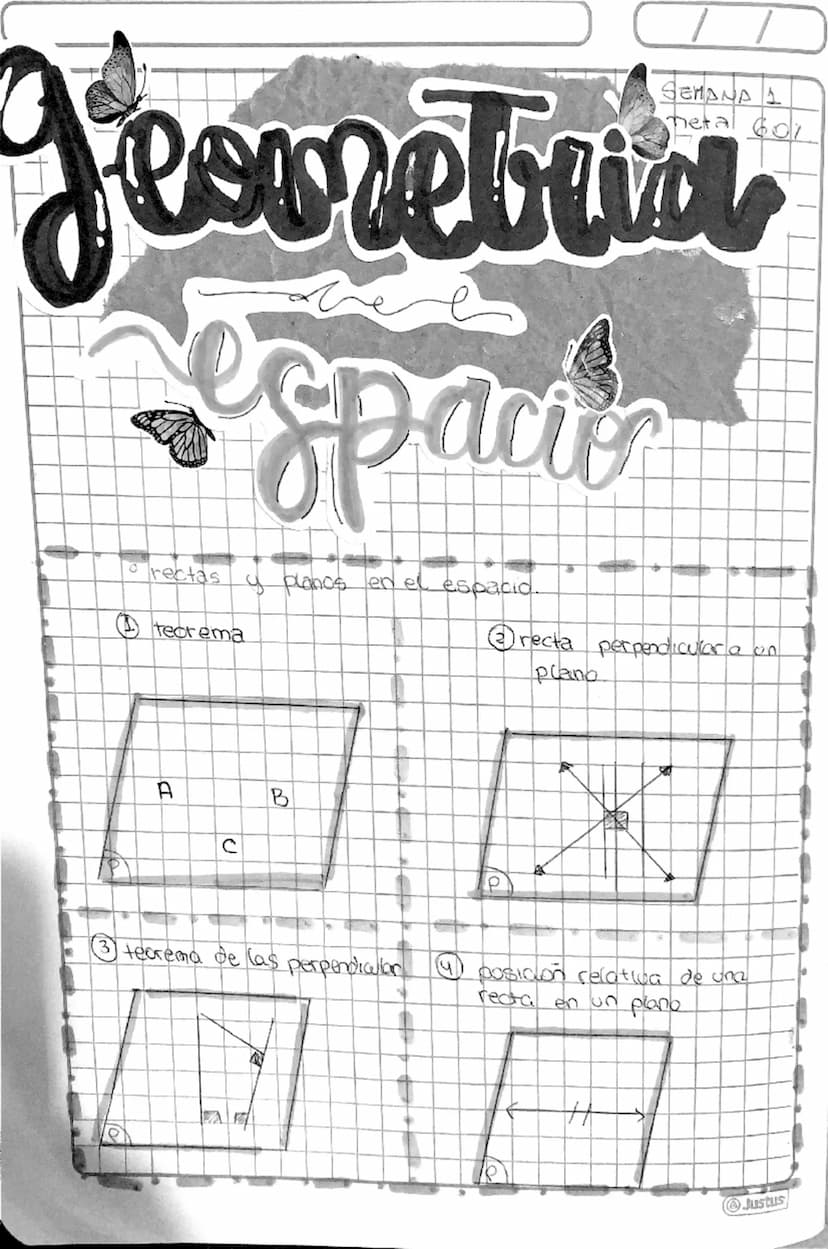 / /
SEMANA 1
meta 60%
geometria
del
espacio
° rectas y planos en el espacio.
① teorema
② recta perpendicular a un
plano.
A
B
C
P
P
③ teorema de las perpendicular
④ posición relativa de una
recta en un plano
P
P
Justus